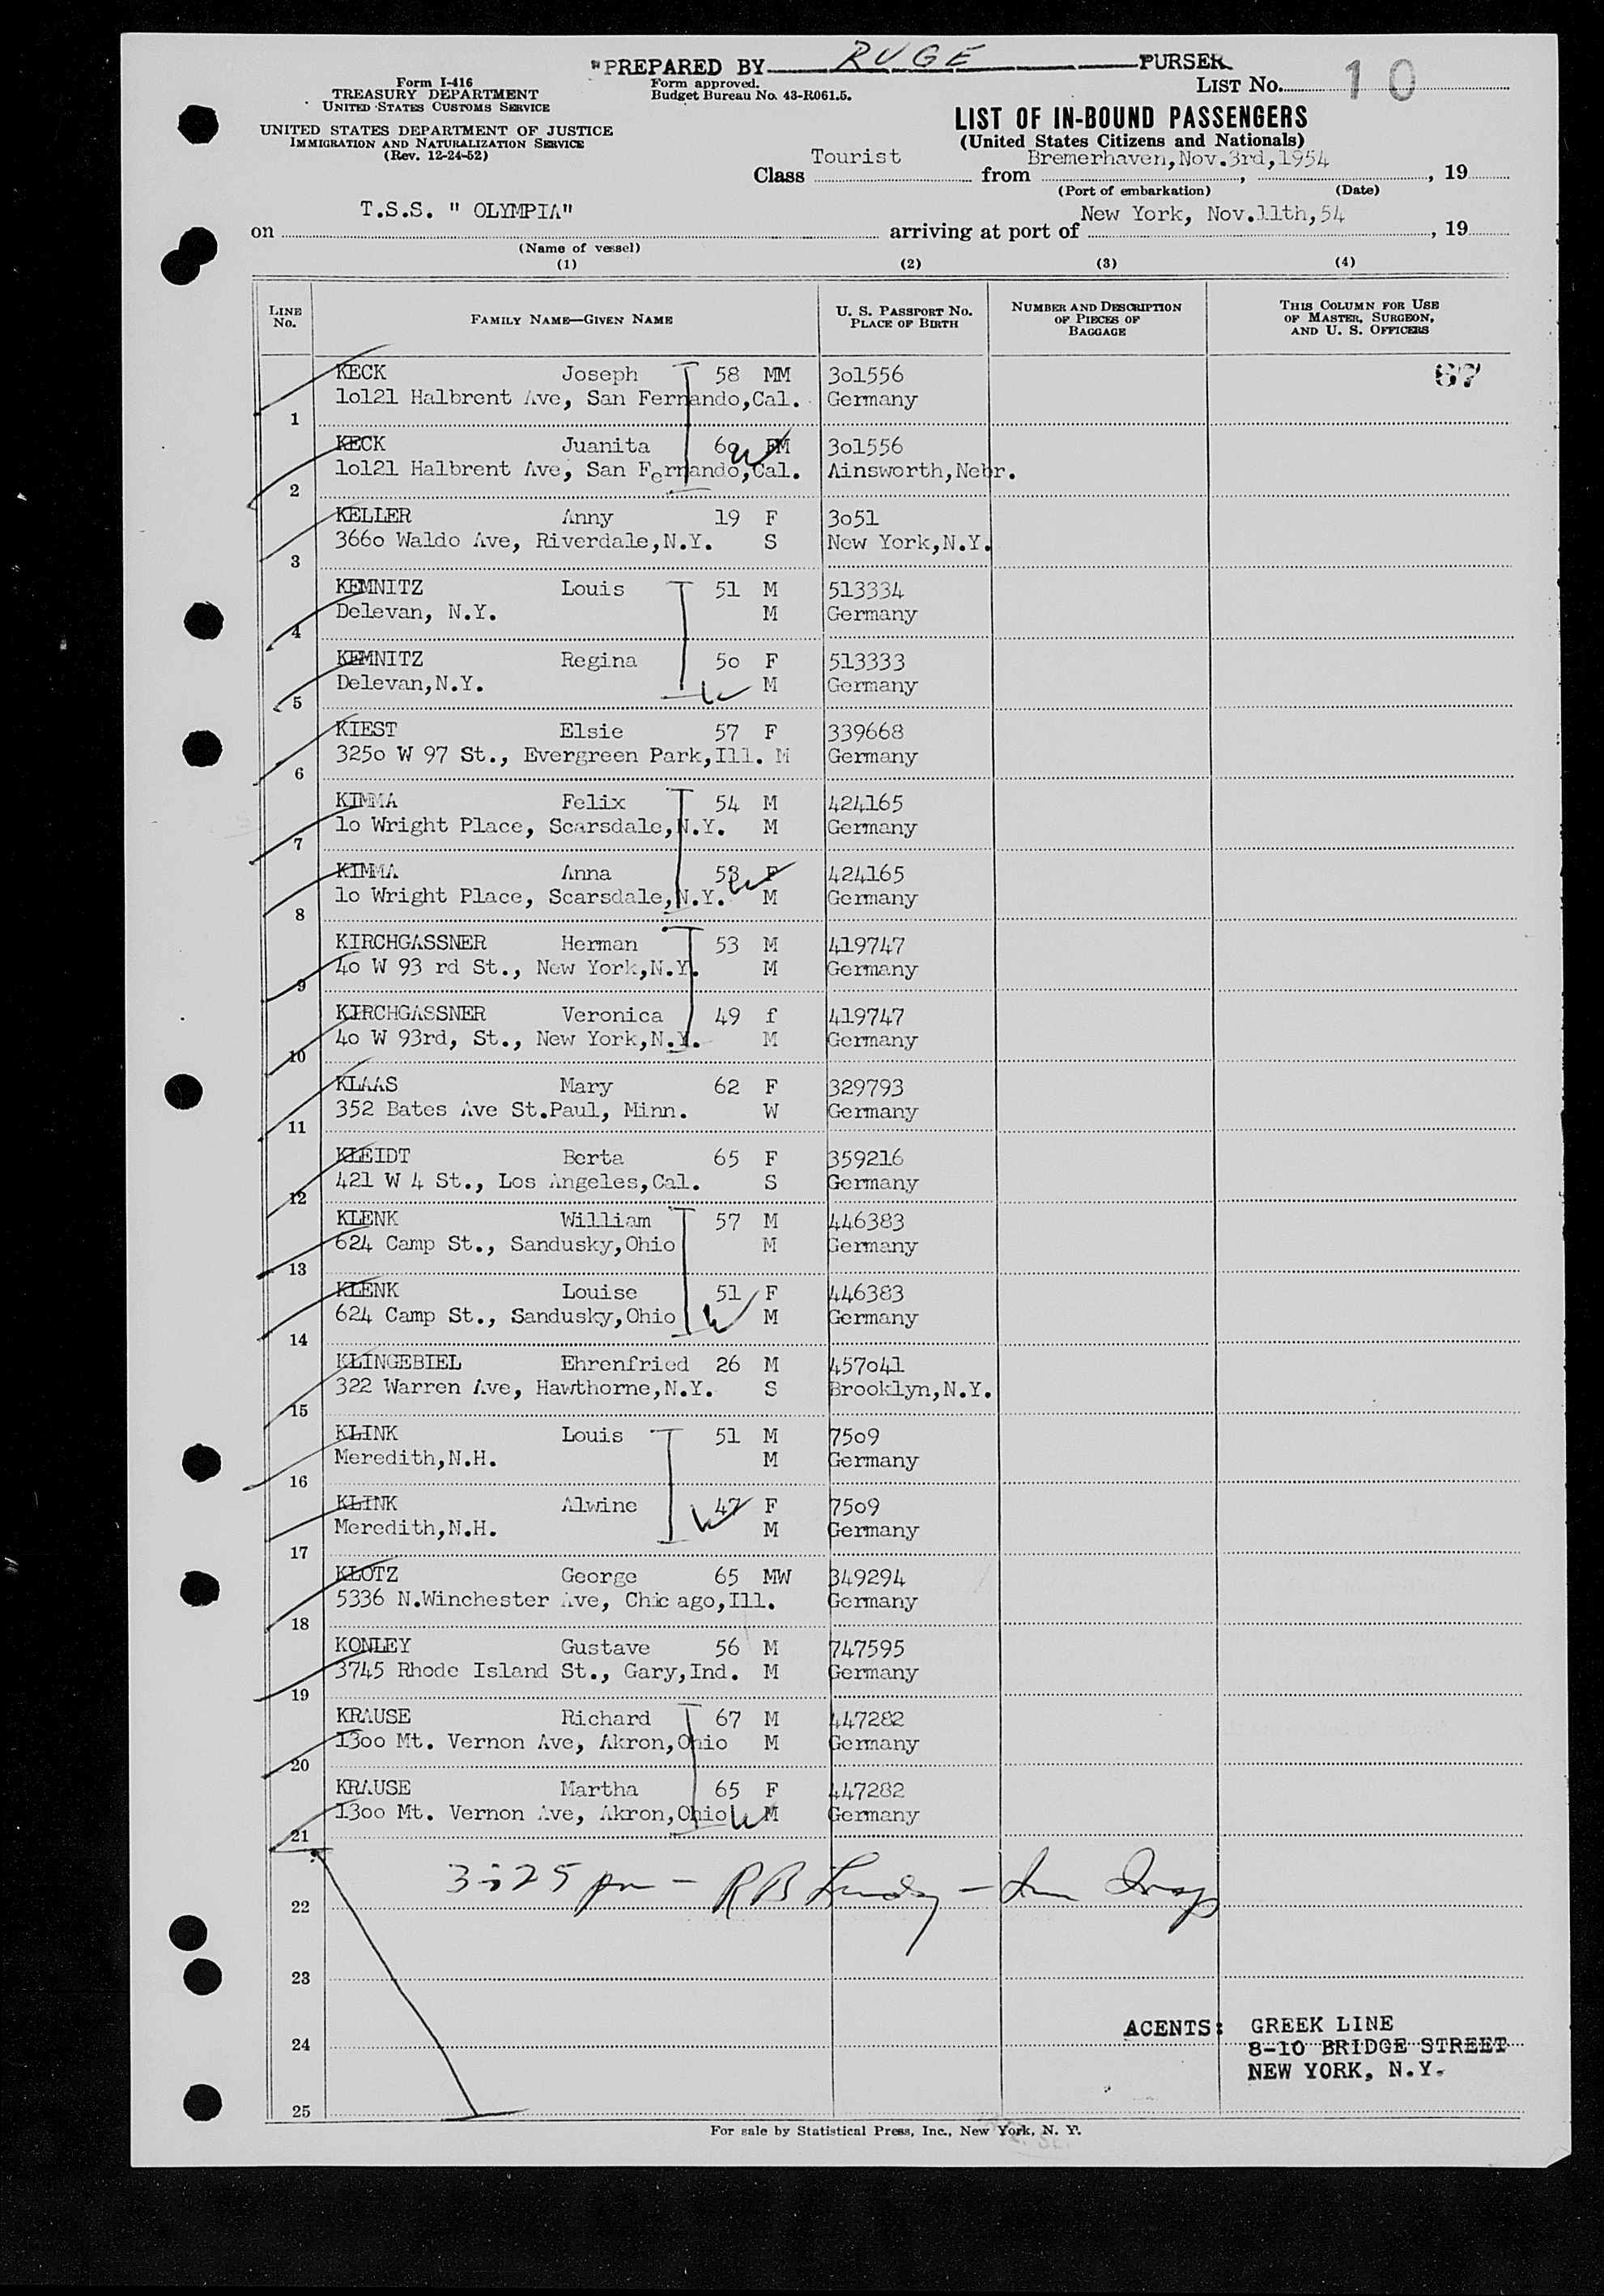 "PREPARED BY RUGE PURSER
Form I-416
TREASURY DEPARTMENT
UNITED STATES CUSTOMS SERVICE
Form approved.
Budget Bureau No. 43-R061.5.
LIST No. 10
UNITED STATES DEPARTMENT OF JUSTICE
IMMIGRATION AND NATURALIZATION SERVICE
(Rev. 12-24-52)
LIST OF IN-BOUND PASSENGERS
(United States Citizens and Nationals)
Class Tourist from Bremerhaven,Nov.3rd,1954, 19
(Port of embarkation) (Date)
on T.S.S. " OLYMPIA" arriving at port of New York, Nov.11th,54, 19
(Name of vessel)
(1) (2) (3) (4)
LINE No. FAMILY NAME—GIVEN NAME U. S. PASSPORT NO. PLACE OF BIRTH NUMBER AND DESCRIPTION OF PIECES OF BAGGAGE THIS COLUMN FOR USE OF MASTER, SURGEON, AND U. S. OFFICERS
KECK Joseph 58 MM 3o1556 67
1o121 Halbrent Ave, San Fernando,Cal. Germany
1
KECK Juanita 6o FM 3o1556
1o121 Halbrent Ave, San Fernando,Cal. Ainsworth,Nebr.
2
KELLER Anny 19 F 3o51
366o Waldo Ave, Riverdale,N.Y. S New York,N.Y.
3
KEMNITZ Louis 51 M 513334
Delevan, N.Y. M Germany
4
KEMNITZ Regina 5o F 513333
Delevan,N.Y. M Germany
5
KIEST Elsie 57 F 339668
325o W 97 St., Evergreen Park,Ill. M Germany
6
KIMMA Felix 54 M 424165
1o Wright Place, Scarsdale,N.Y. M Germany
7
KIMMA Anna 53 F 424165
1o Wright Place, Scarsdale,N.Y. M Germany
8
KIRCHGASSNER Herman 53 M 419747
4o W 93 rd St., New York,N.Y. M Germany
9
KIRCHGASSNER Veronica 49 f 419747
4o W 93rd, St., New York,N.Y. M Germany
10
KLAAS Mary 62 F 329793
352 Bates Ave St.Paul, Minn. W Germany
11
KLEIDT Berta 65 F 359216
421 W 4 St., Los Angeles,Cal. S Germany
12
KLENK William 57 M 446383
624 Camp St., Sandusky,Ohio M Germany
13
KLENK Louise 51 F 446383
624 Camp St., Sandusky,Ohio M Germany
14
KLINGEBIEL Ehrenfried 26 M 457o41
322 Warren Ave, Hawthorne,N.Y. S Brooklyn,N.Y.
15
KLINK Louis 51 M 75o9
Meredith,N.H. M Germany
16
KLINK Alwine 47 F 75o9
Meredith,N.H. M Germany
17
KLOTZ George 65 MW 349294
5336 N.Winchester Ave, Chic ago,Ill. Germany
18
KONLEY Gustave 56 M 747595
3745 Rhode Island St., Gary,Ind. M Germany
19
KRAUSE Richard 67 M 447282
13oo Mt. Vernon Ave, Akron,Ohio M Germany
20
KRAUSE Martha 65 F 447282
13oo Mt. Vernon Ave, Akron,Ohio M Germany
21
3:25 pm - R B
22
23
AGENTS: GREEK LINE
24 8-10 BRIDGE STREET
NEW YORK, N.Y.
25
For sale by Statistical Press, Inc., New York, N. Y.